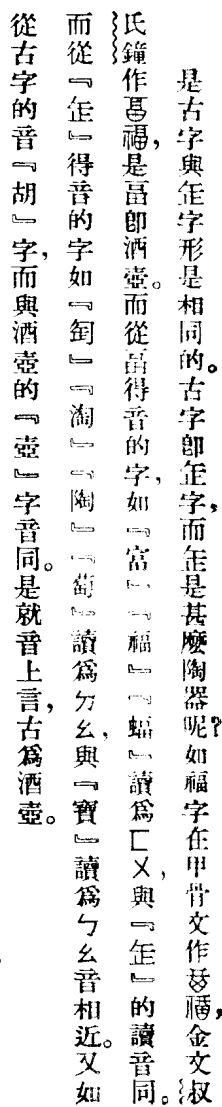 是古字與缶字形是相同的。古字卽缶字,而缶是甚麼陶器呢?如福字在甲骨文作福,金文叔
氏鐘作福,是畐卽酒壺。而從畐得音的字,如『富』『福』『蝠』讀爲ㄈㄨ,與『缶』的讀音同。
而從『缶』得音的字如『匋』『淘』『陶』『萄』讀爲ㄉㄠ,與『寶』讀爲ㄅㄠ音相近。又如
從古字的音『胡』字,而與酒壺的『壺』字音同。是就音上言,古爲酒壺。